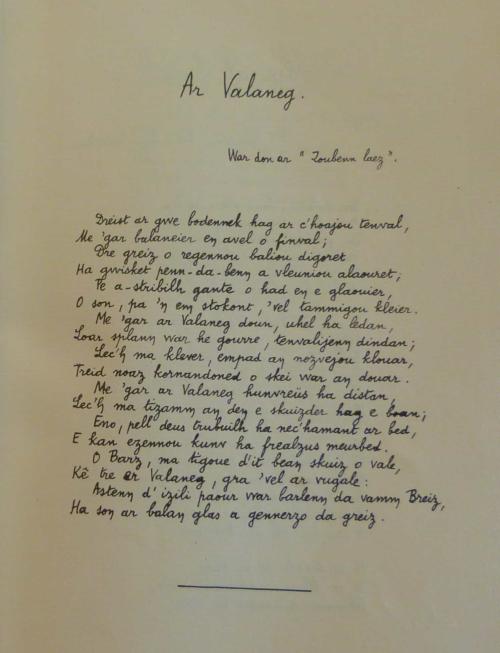 Ar Valaneg.
War don ar "Zoubenn laez".
Dreist ar gwe bodennek hag ar c'hoajou tenval,
Me 'gar balaneier en avel o finval;
Dre greiz o regennou baliou digoret
Ha gwisket penn-da-benn a vleuniou alaouret;
Pe a-stribilh gante o had en e glaouier,
O son, pa 'n em stokont, 'vel tammigou kleier.
Me 'gar ar Valaneg doun, uhel ha ledan,
Loar splann war he gourre, tenvalijenn dindan;
Lec'h ma klever, empad an nozvejou klouar,
Treid noaz kornandoned o skei war an douar.
Me 'gar ar Valaneg hunvreüs ha distan,
Lec'h ma tizamm an den e skuizder hag e boan;
Eno, pell deus trubuilh ha nec'hamant ar bed,
E kan ezennou kunv ha frealzus meurbed.
O Barz, ma tigoue d'it bean skuiz o vale,
Kê tre ar Valaneg, gra 'vel ar vugale:
Astenn d' izili paour war barlenn da vamm Breiz,
Ha son ar balan glas a gennerzo da greiz.